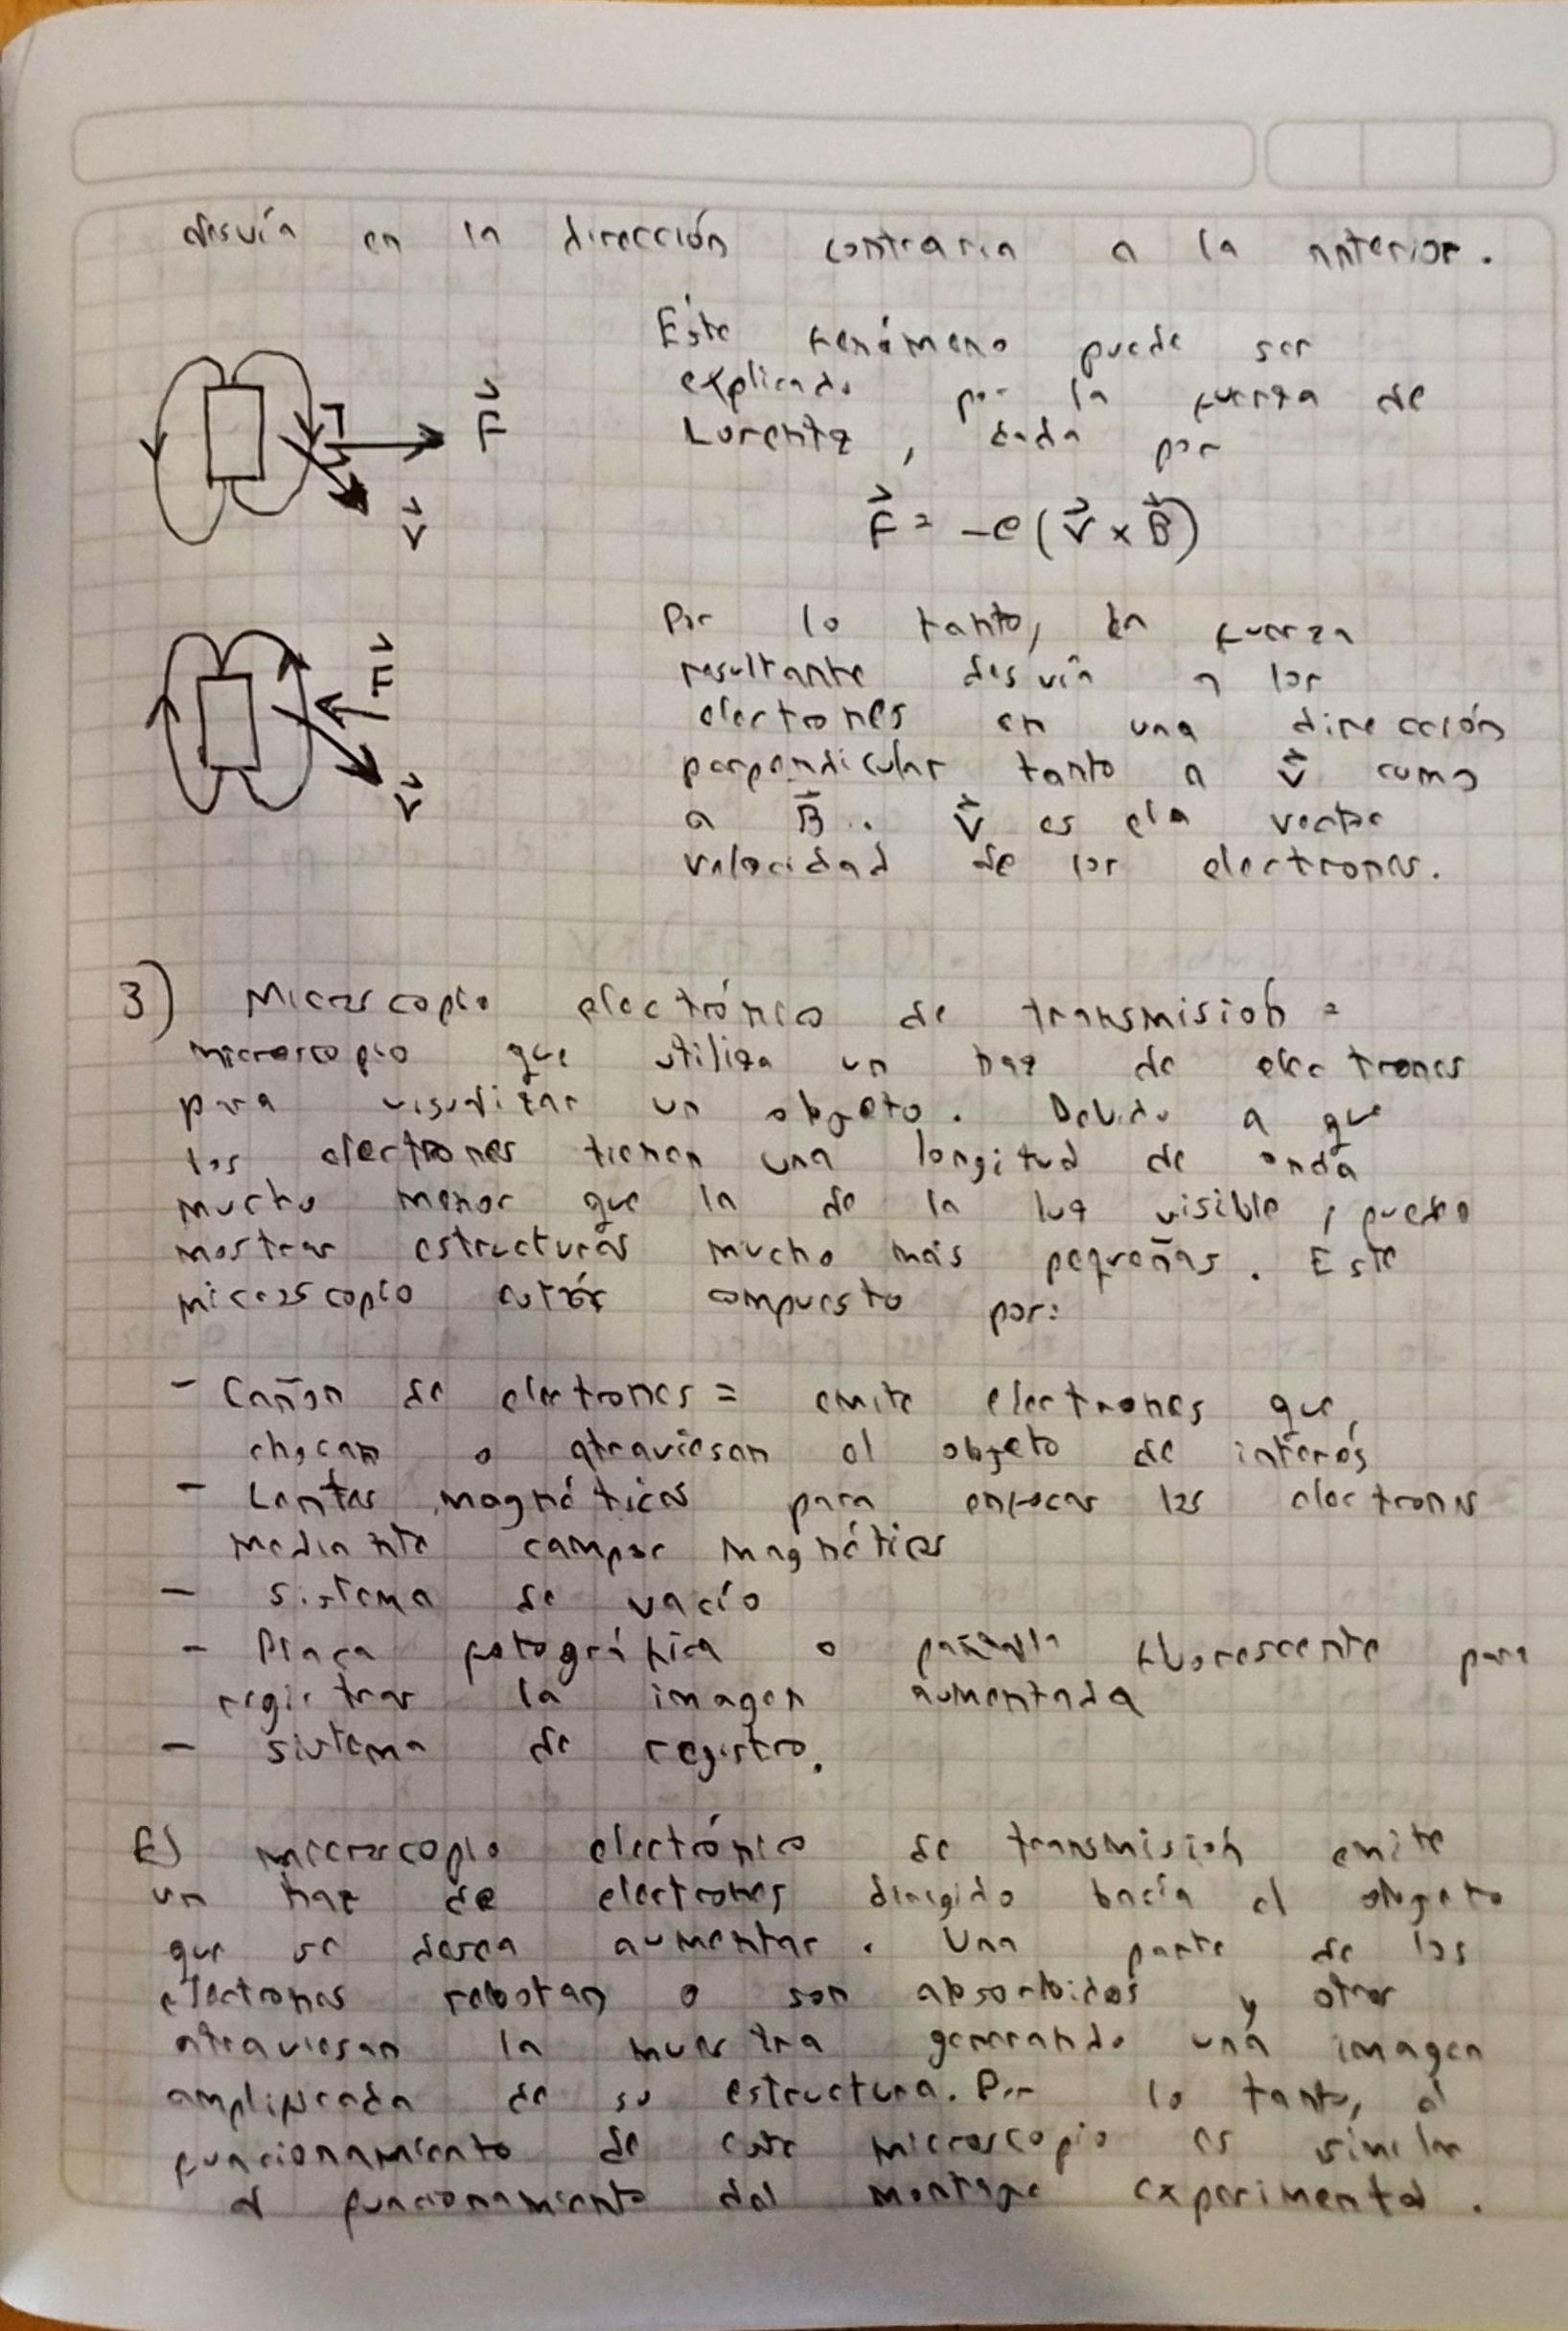 desvía en la dirección contraria a la anterior.
Éste fenómeno puede ser
explicado por la fuerza de
Lorentz, dada por
F⃗ = -e(v⃗ × B⃗)
F⃗
v⃗
Por lo tanto, la fuerza
resultante desvía a los
electrones en una dirección
perpendicular tanto a v⃗ como
a B⃗. v⃗ es el vector
velocidad de los electrones.
F⃗
v⃗
3) Microscopio electrónico de transmisión =
microscopio que utiliza un haz de electrones
para visualizar un objeto. Debido a que
los electrones tienen una longitud de onda
mucho menor que la de la luz visible, puede
mostrar estructuras mucho más pequeñas. Éste
microscopio está compuesto por:
- Cañón de electrones = emite electrones que,
chocan o atraviesan el objeto de interés
- Lentes magnéticas para enfocar los electrones
mediante campos magnéticos
- Sistema de vacío
- Placa fotográfica o pantalla fluorescente para
registrar la imagen aumentada
- sistema de registro.
El microscopio electrónico de transmisión emite
un haz de electrones dirigido hacía el objeto
que se desea aumentar. Una parte de los
electrones rebotan o son absorbidos y otros
atraviesan la muestra generando una imagen
amplificada de su estructura. Por lo tanto, el
funcionamiento de este microscopio es similar
al funcionamiento del montaje experimental.